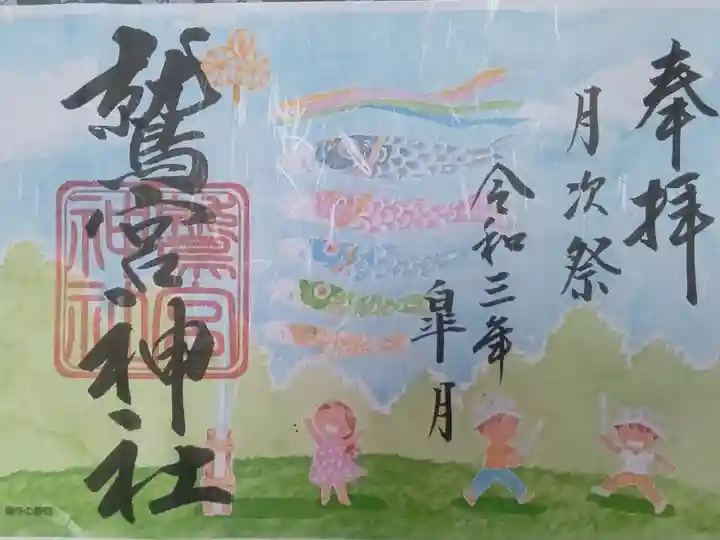 奉拝
月次祭
令和三年
皐月
鷲宮神社
鷲宮
神社